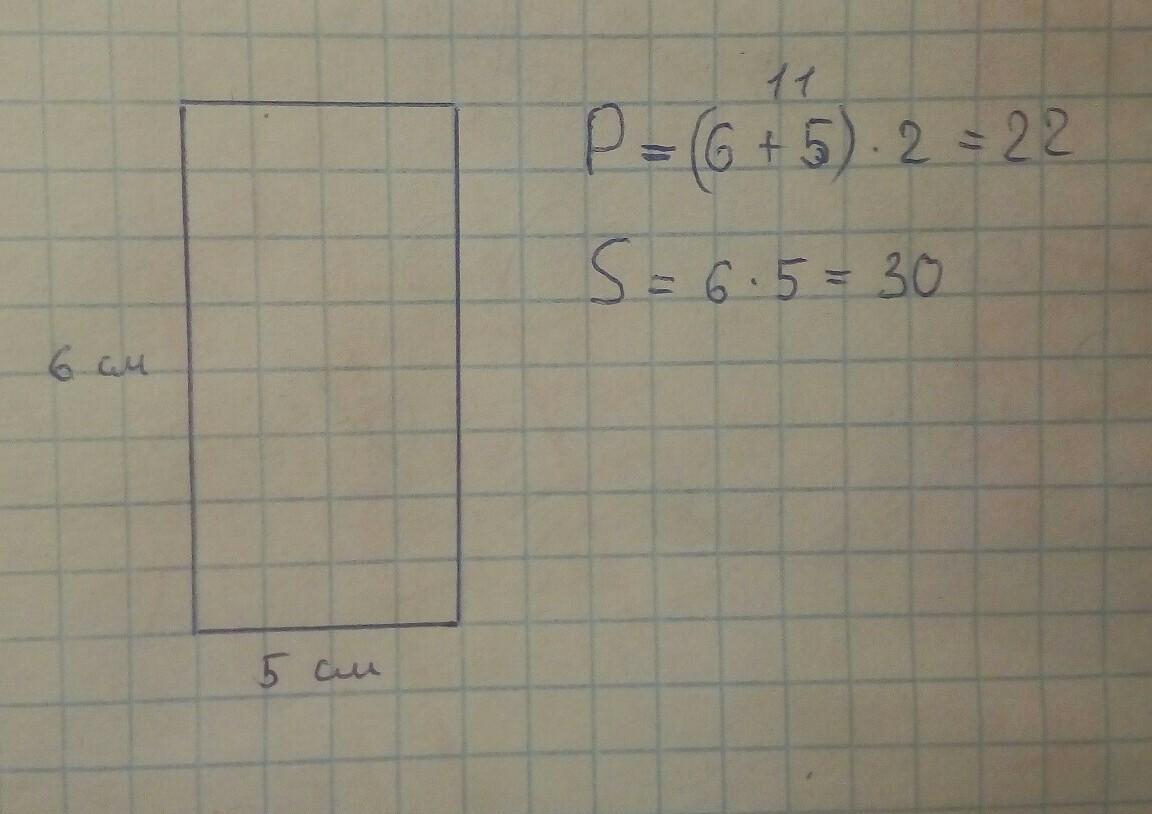 11
P = (6 + 5) · 2 = 22
S = 6 · 5 = 30
6 см
5 см